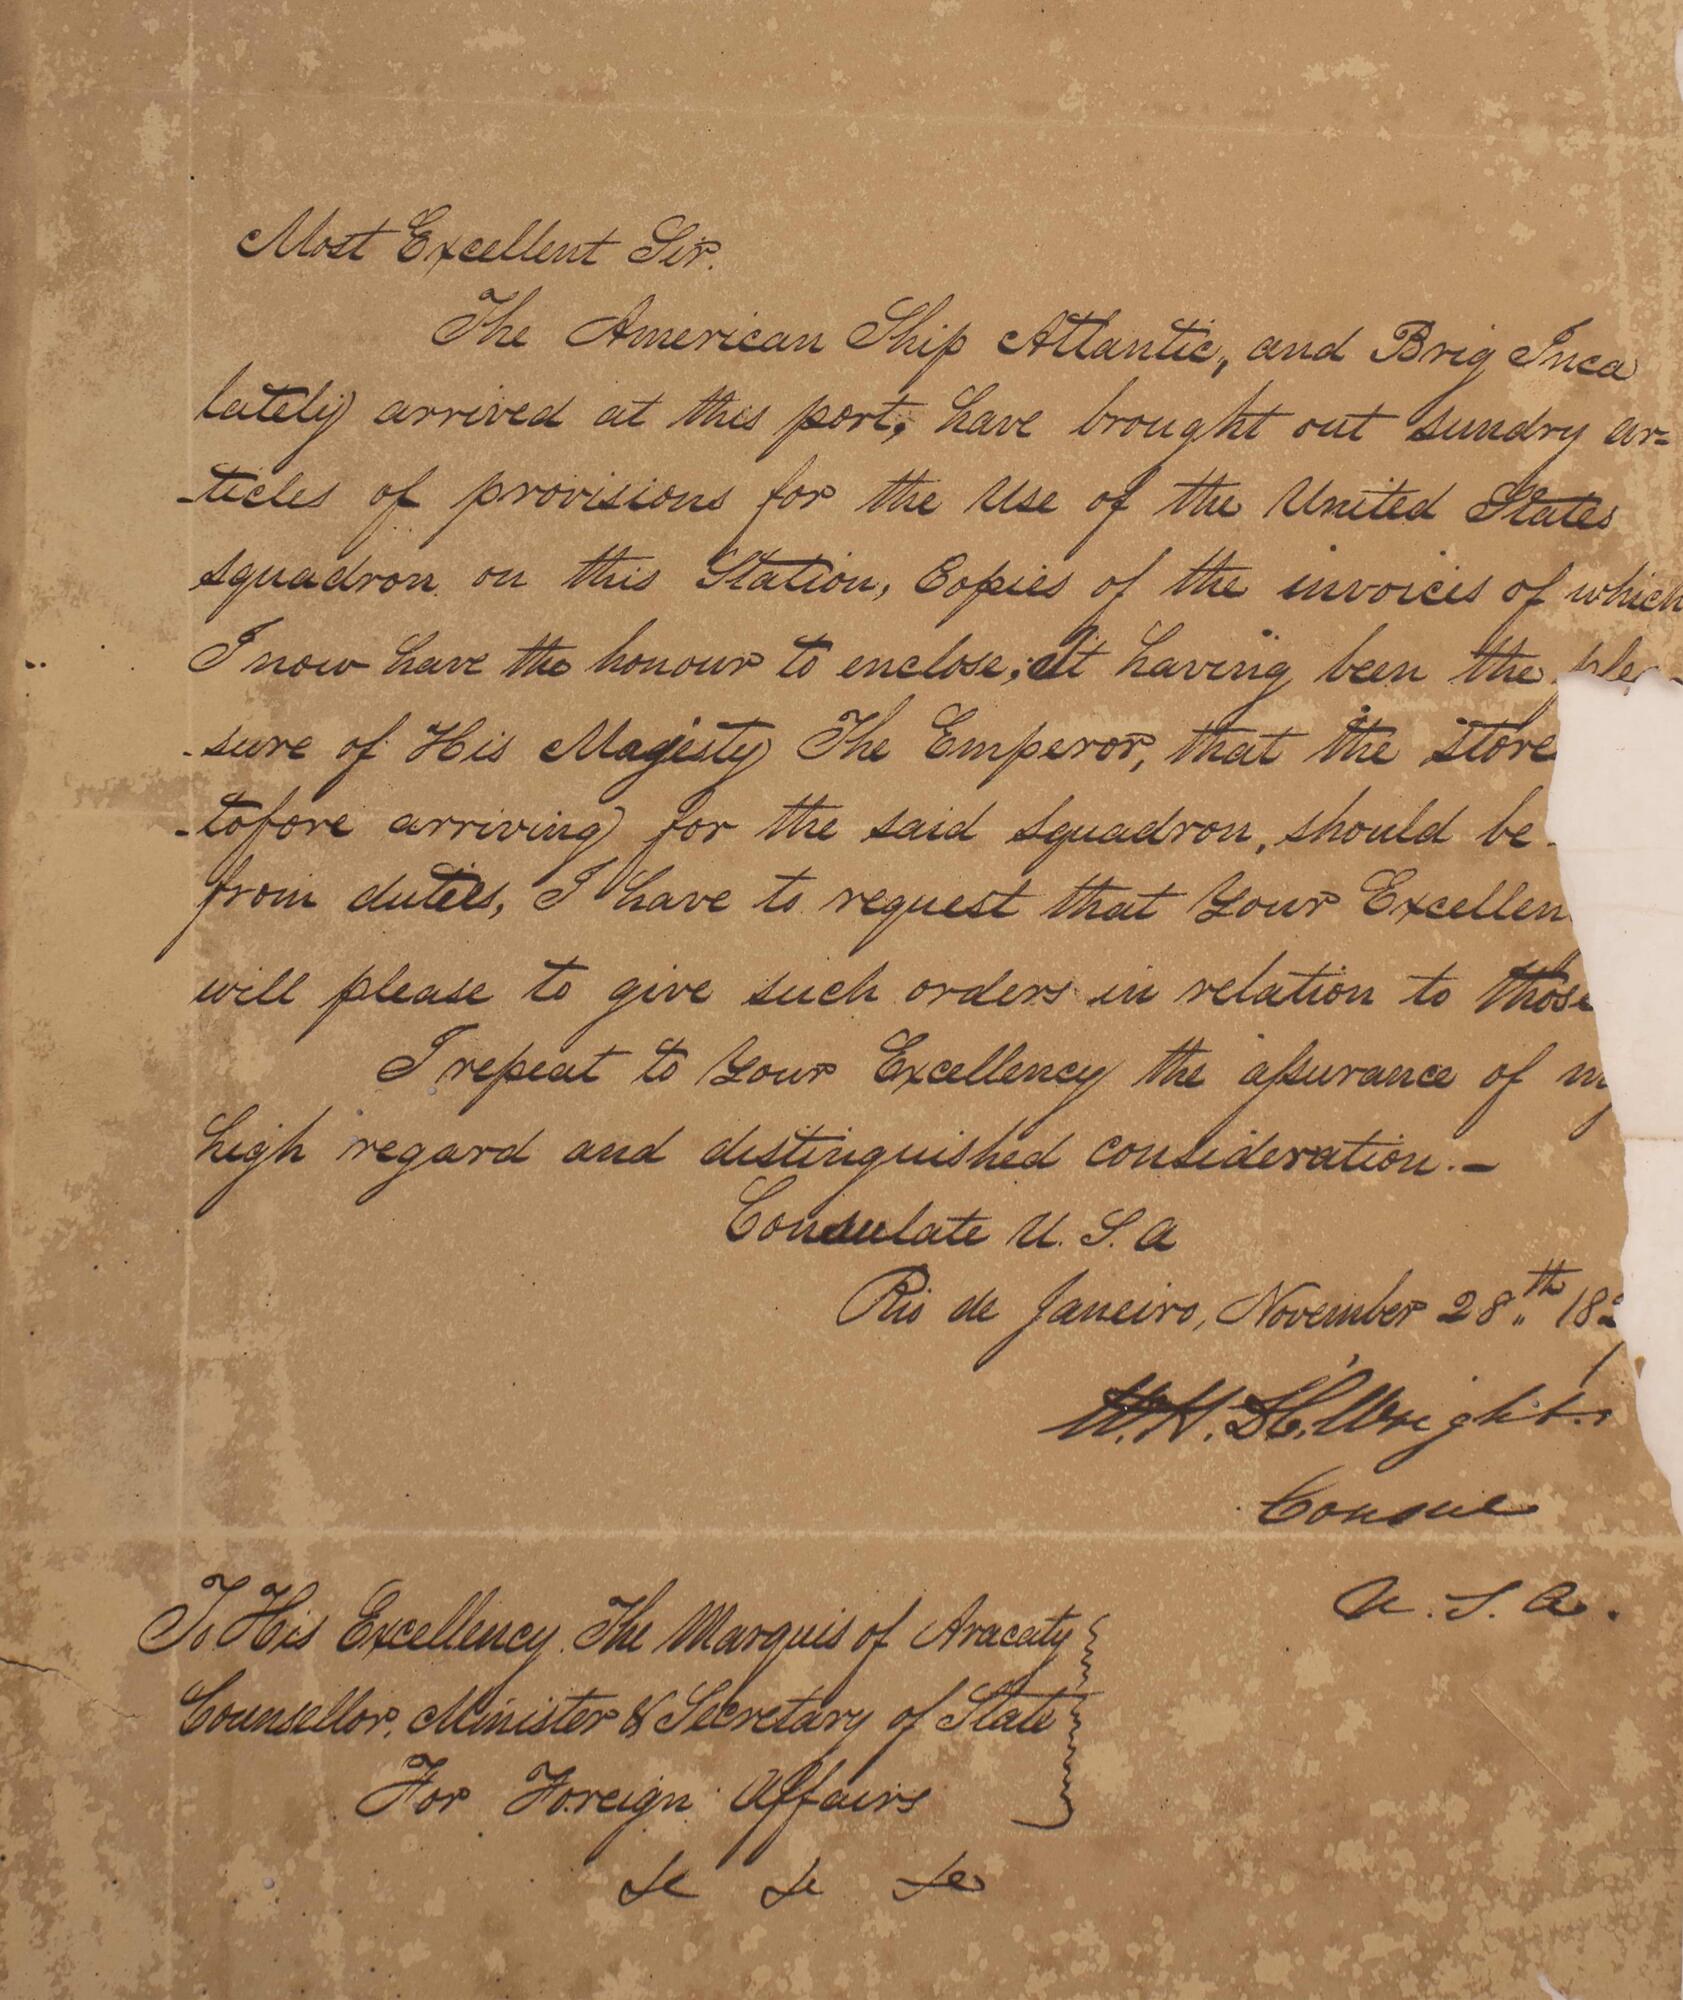 Most Excellent Sir.
The American Ship Atlantic, and Brig Inca
lately arrived at this port, have brought out sundry ar=
-ticles of provisions for the Use of the United States
squadron on this Station, Copies of the invoices of which
I now have the honour to enclose; It having been the plea
-sure of His Majesty The Emperor, that the store
-tofore arriving for the said squadron, should be
from duties, I have to request that Your Excellen
will please to give such orders in relation to those
I repeat to Your Excellency the assurance of my
high regard and distinguished consideration.-
Consulate U. S. A
Rio de Janeiro, November 28th 182
W. H. D. C. Wright.
Consul
U. S. A.
To His Excellency The Marquis of Aracaty
Counsellor, Minister & Secretary of State
For Foreign Affairs
&c &c &c